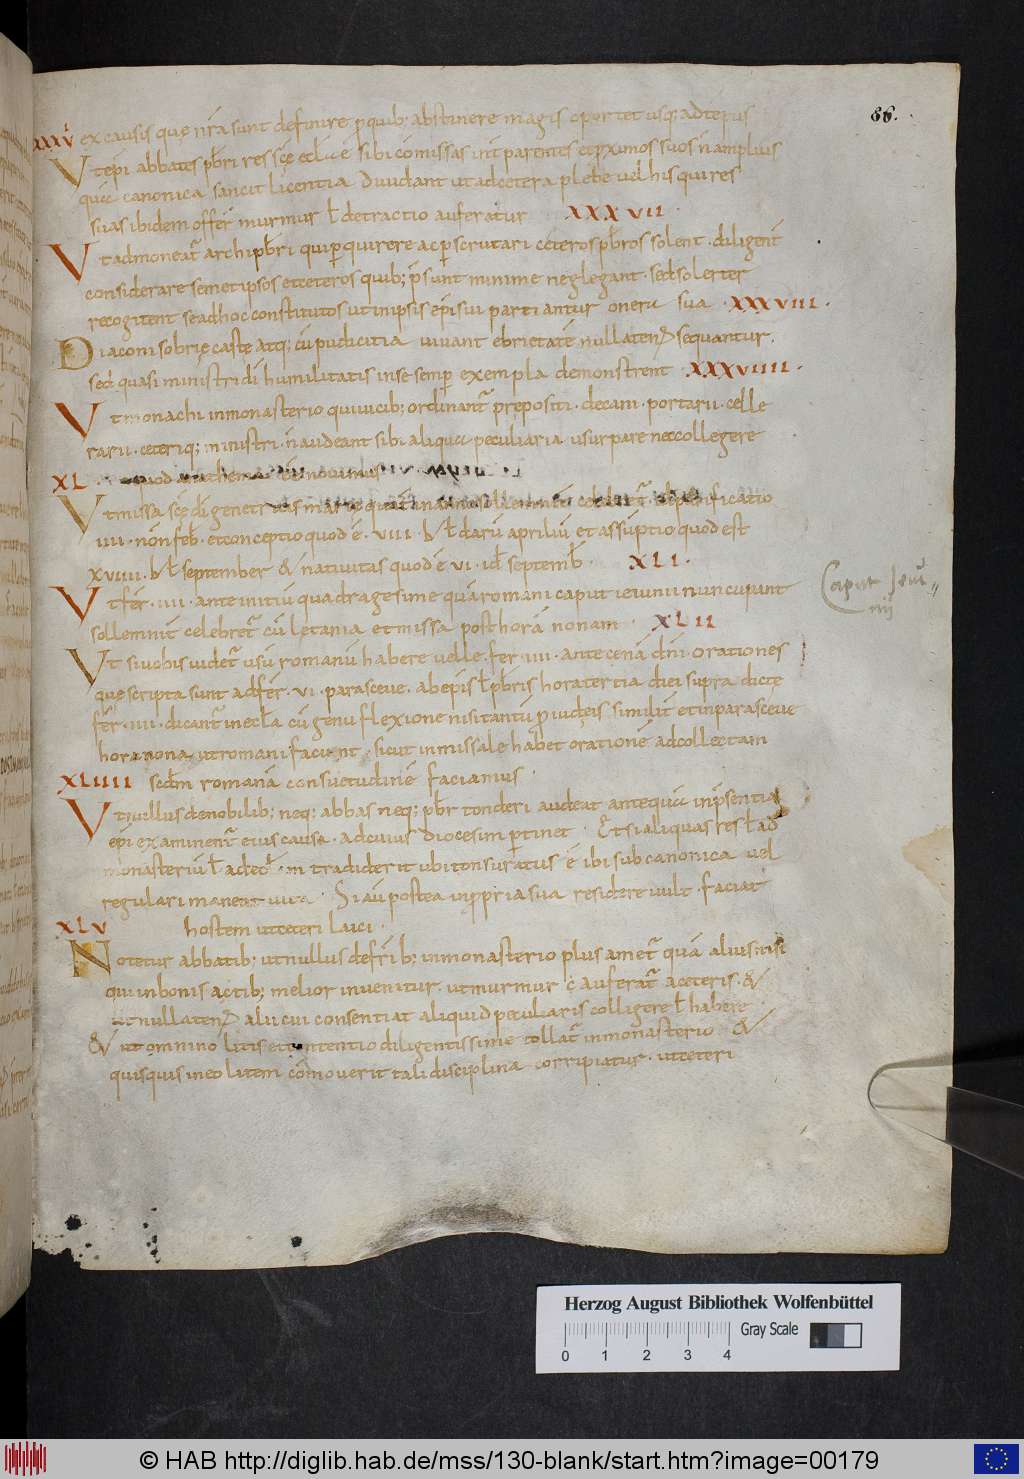 86.
XXXVI ex causis quę nrā sunt definire p quib; abstinere magis oportet usq; ad tēpus
Ut epi abbates pbri res scę eclīe sibi cōmissas int parentes et pximos suos n amplius
quā canonica sancit licentia diuidant ut ad cetera plebe uel his qui res
suas ibidem offer murmur ł detractio auferatur XXXVII
Ut admoneat archipbri qui pquirere ac pscrutari ceteros pbros solent · diligent
considerare semetipsos et ceteros quib; psunt minime neglegant · sed solerter
recogitent se ad hoc constitutos ut in ipsis epi sui partiantur onera sua · XXXVIII ·
Diaconi sobrię caste atq; cū pudicitia uiuant ebrietatē nullaten; sequantur ·
sed quasi ministri dī humilitatis in se semp exempla demonstrent · XXXVIIII ·
Ut monachi in monasterio quiuicib; ordinant prępositi · decani · portarii · celle
rarii · ceteriq; ministri · n audeant sibi aliqua peculiaria usurpare nec collegere
XL · quod anathema
Ut missa scę dī genetricis marię quat in anno sollemnit celebret id · purificatio
IIII · non feb · et conceptio quod ē · VIII · kł darū apriliū et assūptio quod est
XVIIII · kł september & natiuitas quod ē VI · id septemb · XLI ·
Ut fer · IIII · ante initiū quadragesime quā romani caput ieiunii nuncupant
sollemnit celebret cū letania et missa post horā nonam · XLII
Caput Ieiu-
nij
Ut si uobis uidet usū romanū habere uelle · fer · IIII · ante cena dni · orationes
que scripta sunt ad fer · VI · parasceue · ab epis ł pbris hora tertia diei supra dicte
fer · IIII · dicant in ecła cū genu flexione nisi tantū p iudeis similit et in parasceue
hora nona ut romani faciunt · sicut in missale habet orationē ad collectam
XLIIII scdm romanā consuetudinē faciamus ·
Ut nullus de nobilib; neq; abbas neq; pbr tonderi audeat antequā in psentia
epi examinent eius causa · ad cuius diocesim ptinet · Et si aliquas res ł ad
monasteriū ł ad ecł · m tradiderit ubi tonsuratus ē ibi sub canonica uel
regulari maneat uita · Si aū postea in ppria sua residere uult · faciat
XLV hostem ut ceteri laici ·
Notetur abbatib; ut nullus de frib; in monasterio plus amet quā alius nisi
qui in bonis actib; melior inuenitur · ut murmur c auferat a ceteris · &
ut nullaten; alicui consentiat aliquid peculiaris colligere ł habere
& ut omnino litis et contentio diligentissime tollat in monasterio &
quisquis in eo litem cōmouerit tali disciplina corripiatur · ut ceteri
Herzog August Bibliothek Wolfenbüttel
Gray Scale
0 1 2 3 4
© HAB http://diglib.hab.de/mss/130-blank/start.htm?image=00179